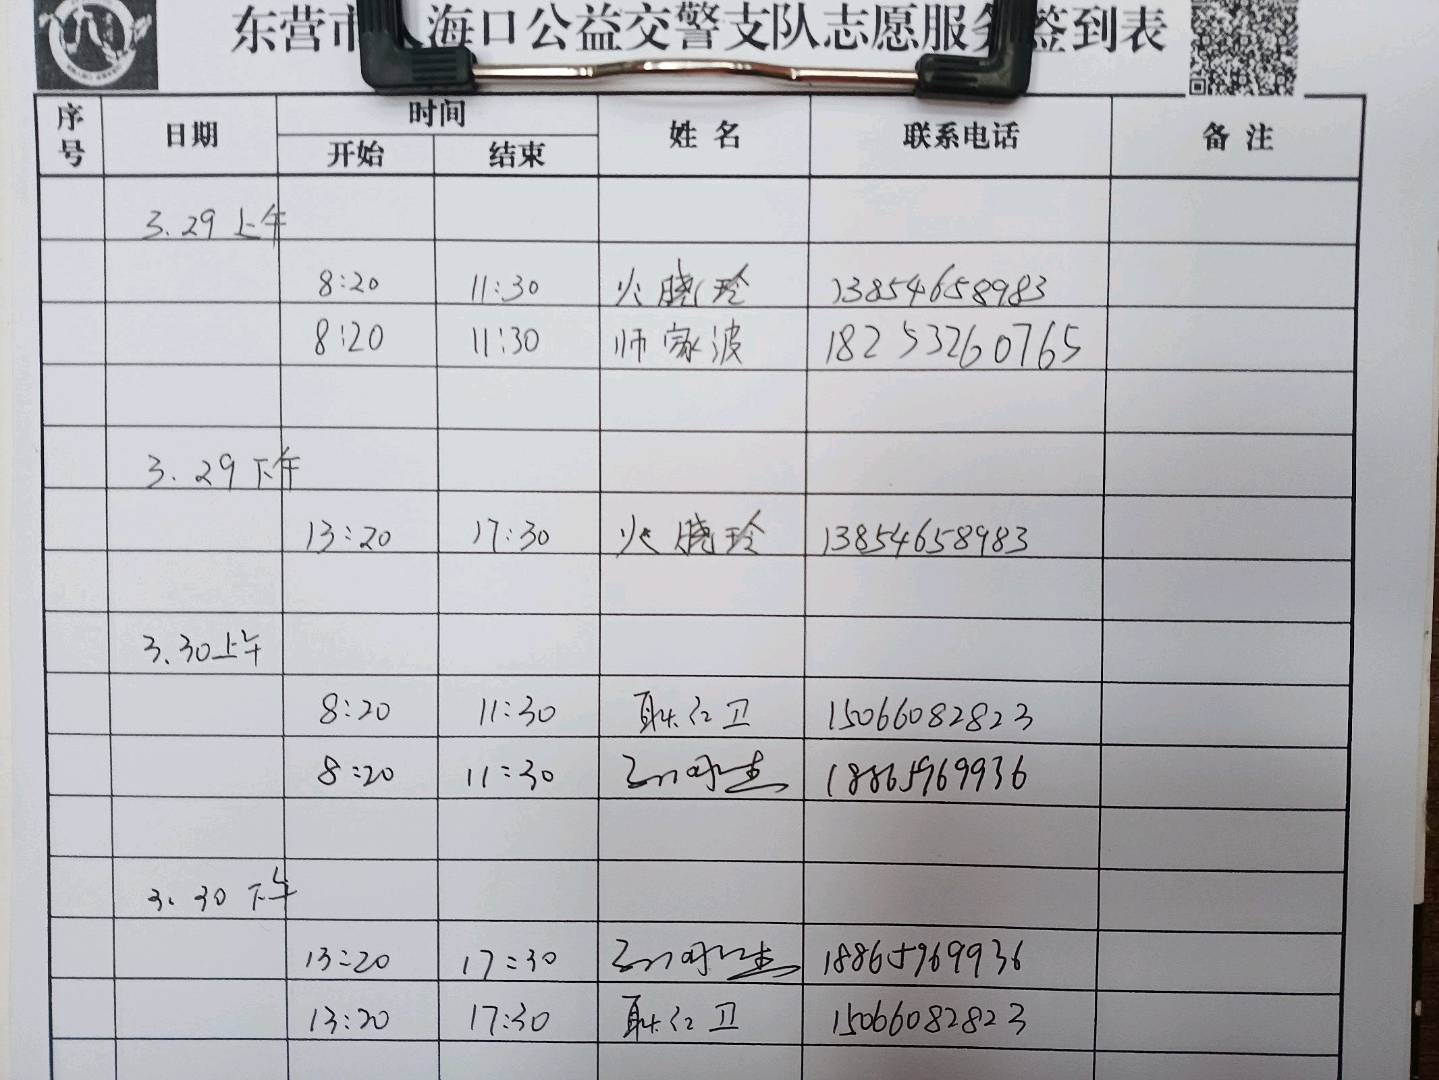 东营市 海口公益交警支队志愿服务签到表
序号 日期 时间 姓名 联系电话 备注
开始 结束
3.29上午
8:20 11:30 火晓玲 13854658983
8:20 11:30 师家波 18253260765
3.29下午
13:20 17:30 火晓玲 13854658983
3.30上午
8:20 11:30 耿红卫 15066082823
8:20 11:30 18865969936
3.30下午
13:20 17:30 18865969936
13:20 17:30 耿红卫 15066082823